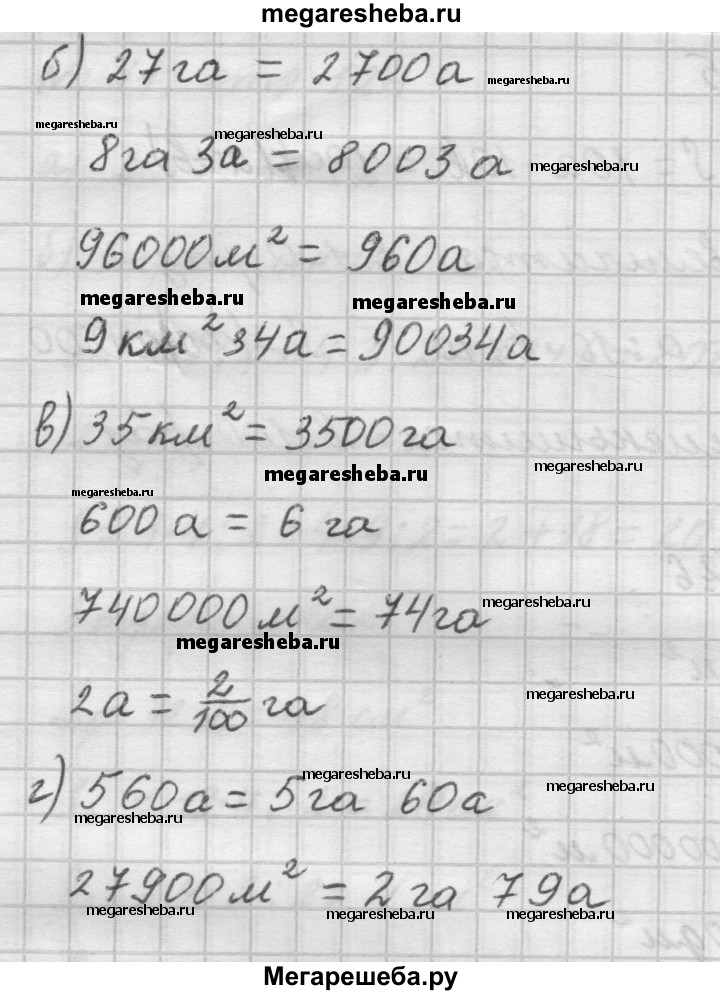 megaresheba.ru
б) 27га = 2700а megaresheba.ru
megaresheba.ru megaresheba.ru
8га 3а = 8003а megaresheba.ru
96000м² = 960а
megaresheba.ru megaresheba.ru
9км² 34а = 90034а
в) 35км² = 3500га
megaresheba.ru megaresheba.ru
megaresheba.ru
600а = 6 га
740000м² = 74га megaresheba.ru
megaresheba.ru
2а = 2/100 га megaresheba.ru
megaresheba.ru
г) 560а = 5га 60а megaresheba.ru
megaresheba.ru
27900м² = 2га 79а
megaresheba.ru megaresheba.ru megaresheba.ru
Мегарешеба.ру